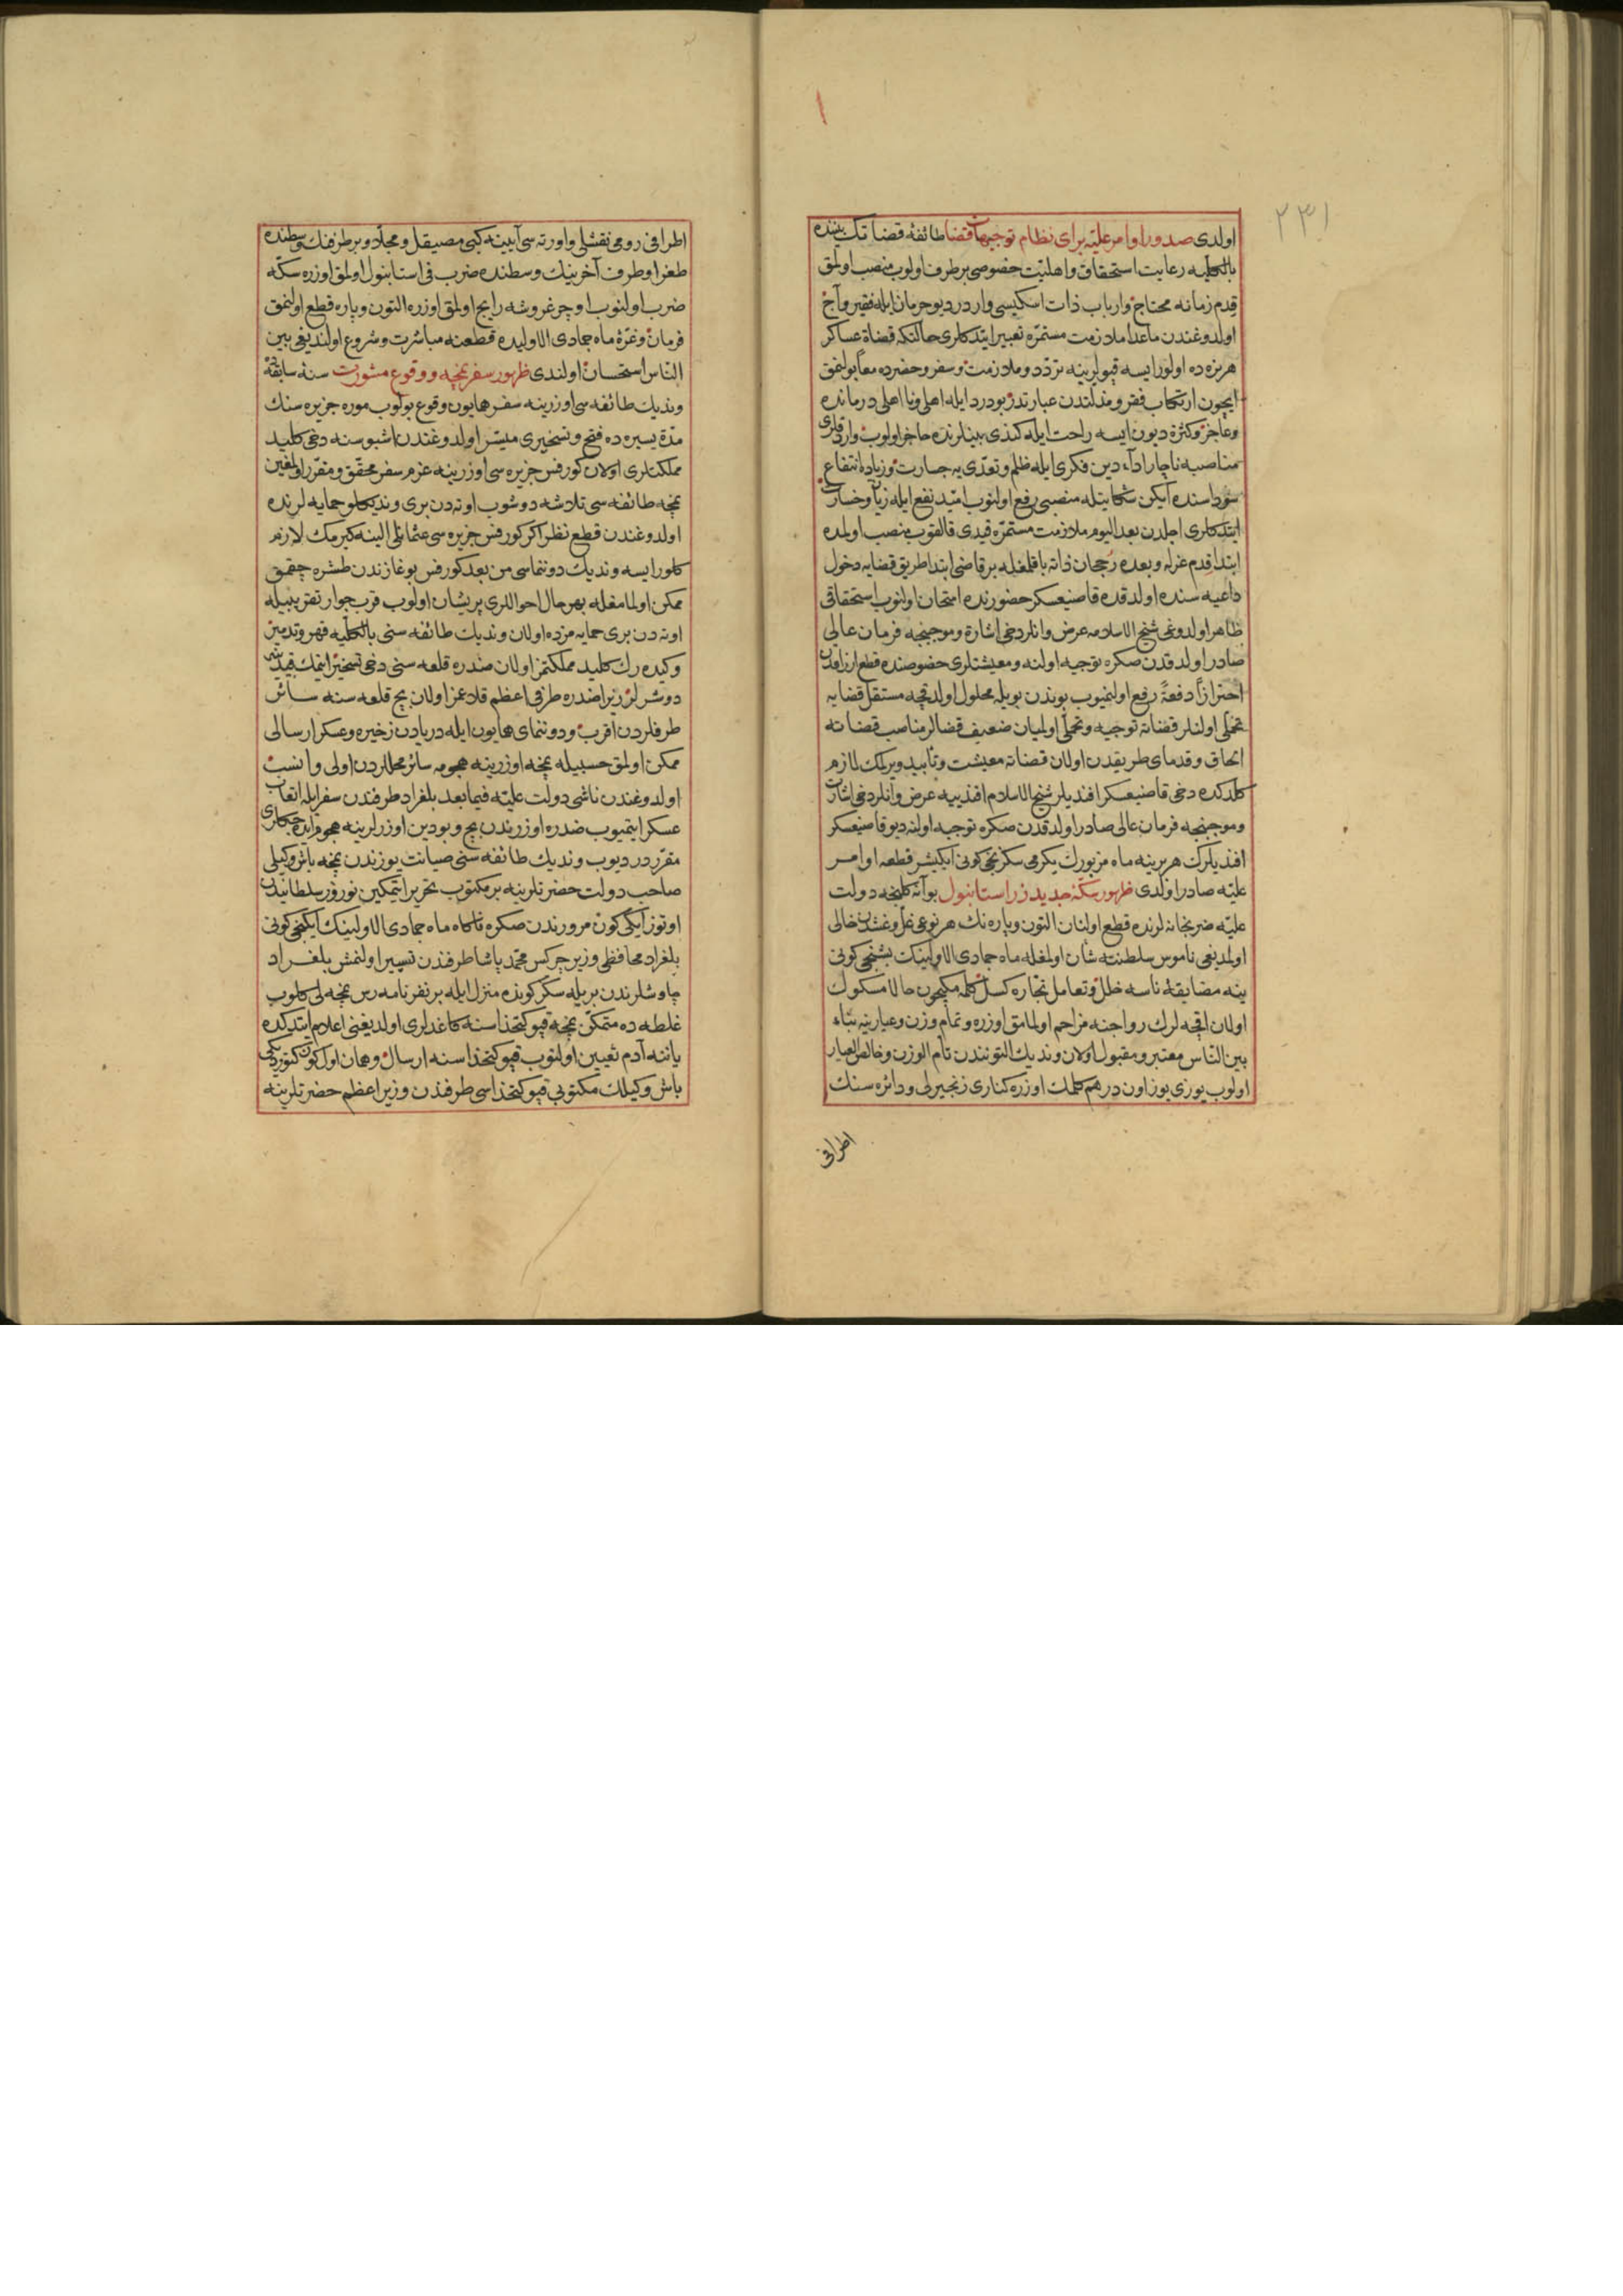 ٢٣١
اولدی صدور اوامر علیّه برای نظام توجیهات قضا طائفۀ قضاتک بیننده
بالکلیه رعایت استحقاق واهلیّت خصوصی برطرف اولوب منصب اولمق
قدم زمانه محتاج وارباب ذات اسکیسی واردر دیو حرمان ایله فقیر وآج
اولدوغندن ماعدا ملازمت مستمرّه تعبیر ایتدکلری حالتکه قضاة عساکر
هر نره ده اولورایسه قپولرینه تردّد وملازمت وسفر وحضرده معاً بولنمق
ایچون ارتکاب فقر ومذلتدن عبارتدر بو درد ایله اهلی ونا اهلی درمانده
وعاجز وکثرة دیون ایسه راحت ایله کندی بینلرنده حاجز اولوب واردقلری
مناصبه ناچار اداء دین فکری ایله ظلم وتعدّی یه جسارت وزیاده انتفاع
سوداسنده ایکن شکایتله منصبی رفع اولنوب امّید نفع ایله زیان وخسارت
ایتدکلری اجلدن بعدالیوم ملازمت مستمرّه قیدی قالقوب منصب اولمده
ابتدا قدم عزله وبعده رجحان ذاته باقلمغله بر قاضی ابتدا طریق قضایه دخول
داعیه سنده اولدقده قاضیعسکر حضورنده امتحان اولنوب استحقاقی
ظاهر اولدوغی شیخ الاسلامه عرض وانلر دخی اشارة وموجبنجه فرمان عالی
صادر اولدقدن صکره توجیه اولنه ومعیشتلری خصوصنده قطع ارزاقدن
احترازاً دفعةً رفع اولنمیوب بوندن بویله محلول اولدقجه مستقل قضایه
تحمّلی اولنلر قضاته توجیه وتحمّلی اولمیان ضعیف قضالر مناصب قضاته
الحاق وقدمای طریقدن اولان قضاته معیشت وتأبید ویرلمک لازم
کلدکده دخی قاضیعسکر افندیلر شیخ الاسلام افندییه عرض وانلر دخی اشارت
وموجبنجه فرمان عالی صادر اولدقدن صکره توجیه اولنه دیو قاضیعسکر
افندیلرک هر برینه ماه مزبورک یکرمی سکزنجی کونی ایکیشر قطعه اوامر
علیّه صادر اولدی ظهور سکّۀ جدید زر استانبول بو آنه کلنجه دولت
علیّه ضربخانه لرنده قطع اولنان التون وپاره نک هر نوعی غلّ وغشدن خالی
اولمدیغی ناموس سلطنته شأن اولمغله ماه جمادی الاولینک بشنجی کونی
ینه مضایقۀ ناسه خلل وتعامل تجّاره کسل کلمه مکیچون حالا مسکوک
اولان اقچه لرک رواجنه مزاحم اولمامق اوزره وتمام وزن وعیارینه بناء
بین النّاس معتبر ومقبول اولان وندیک التونندن تامّ الوزن وخالص العیار
اولوب یوزی یوز اون درهم کلمک اوزره کناری زنجیرلی ودائره سنک
اطرافی
اطرافی رومی نقشلی واورته سی آیینه کبی مصیقل ومجلّا وبر طرفنک وسطنده
طغرا وطرف آخرینک وسطنده ضرب فی استانبول اولمق اوزره سکّه
ضرب اولنوب اوچر غروشه رایج اولمق اوزره التون وپاره قطع اولنمق
فرمان وغرّۀ ماه جمادی الاولیده قطعنه مباشرت وشروع اولندیغی بین
النّاس استحسان اولندی ظهور سفر نمچه ووقوع مشورت سنۀ سابقه
وندیک طائفه سی اوزرینه سفر همایون وقوع بولوب موره جزیره سنک
مدّة یسیره ده فتح وتسخیری میسّر اولدوغندن اشبو سنه دخی کلید
مملکتلری اولان کورفس جزیره سی اوزرینه عزم سفر محقّق ومقرّر اولمغین
نمچه طائفه سی تلاشه دوشوب اوته دن بری وندیکلو حمایه لرنده
اولدوغندن قطع نظر اکر کورفس جزیره سی عثمانلی الینه کیرمک لازم
کلورایسه وندیک دوننماسی من بعد کورفس بوغازندن طشره چقمق
ممکن اولمامغله بهر حال احوالری پریشان اولوب قرب جوار تقریبیله
اوته دن بری حمایه مزده اولان وندیک طائفه سنی بالکلّیه قهر وتدمیر
وکیده رک کلید مملکتمز اولان صدره قلعه سنی دخی تسخیر ایتمک قیدینه
دوشرلر زیرا صدره طرفی اعظم قلاعمز اولان بچ قلعه سنه سائر
طرفلردن اقرب ودوننمای همایون ایله دریادن زخیره وعسکر ارسالی
ممکن اولمق حسبیله نمچه اوزرینه هجومه سائر محللردن اولی وانسب
اولدوغندن ناشی دولت علیّه فیمابعد بلغراد طرفندن سفر ایله اتعاب
عسکر ایتمیوب صدره اوزرندن بچ وبودین اوزرلرینه هجوم ایده جکلری
مقرّردر دیوب وندیک طائفه سنی صیانت یوزندن نمچه باش وکیلی
صاحب دولت حضرتلرینه بر مکتوب تحریر ایتمکین نوروز سلطانیدن
اوتوز ایکی کون مرورندن صکره ناکاه ماه جمادی الاولینک ایکنجی کونی
بلغراد محافظی وزیر چرکس محمّد پاشا طرفندن تسییر اولنمش بلغراد
چاوشلرندن بریله سکز کونده منزل ایله بر نفر نامه رس نمچه لی کلوب
غلطه ده متمکّن نمچه قپو کتخداسنه کاغدلری اولدیغنی اعلام ایتدکده
یاننه آدم تعیین اولنوب قپو کتخداسنه ارسال وهمان اول کون کتوردیکی
باش وکیلک مکتوبی قپو کتخداسی طرفندن وزیر اعظم حضرتلرینه